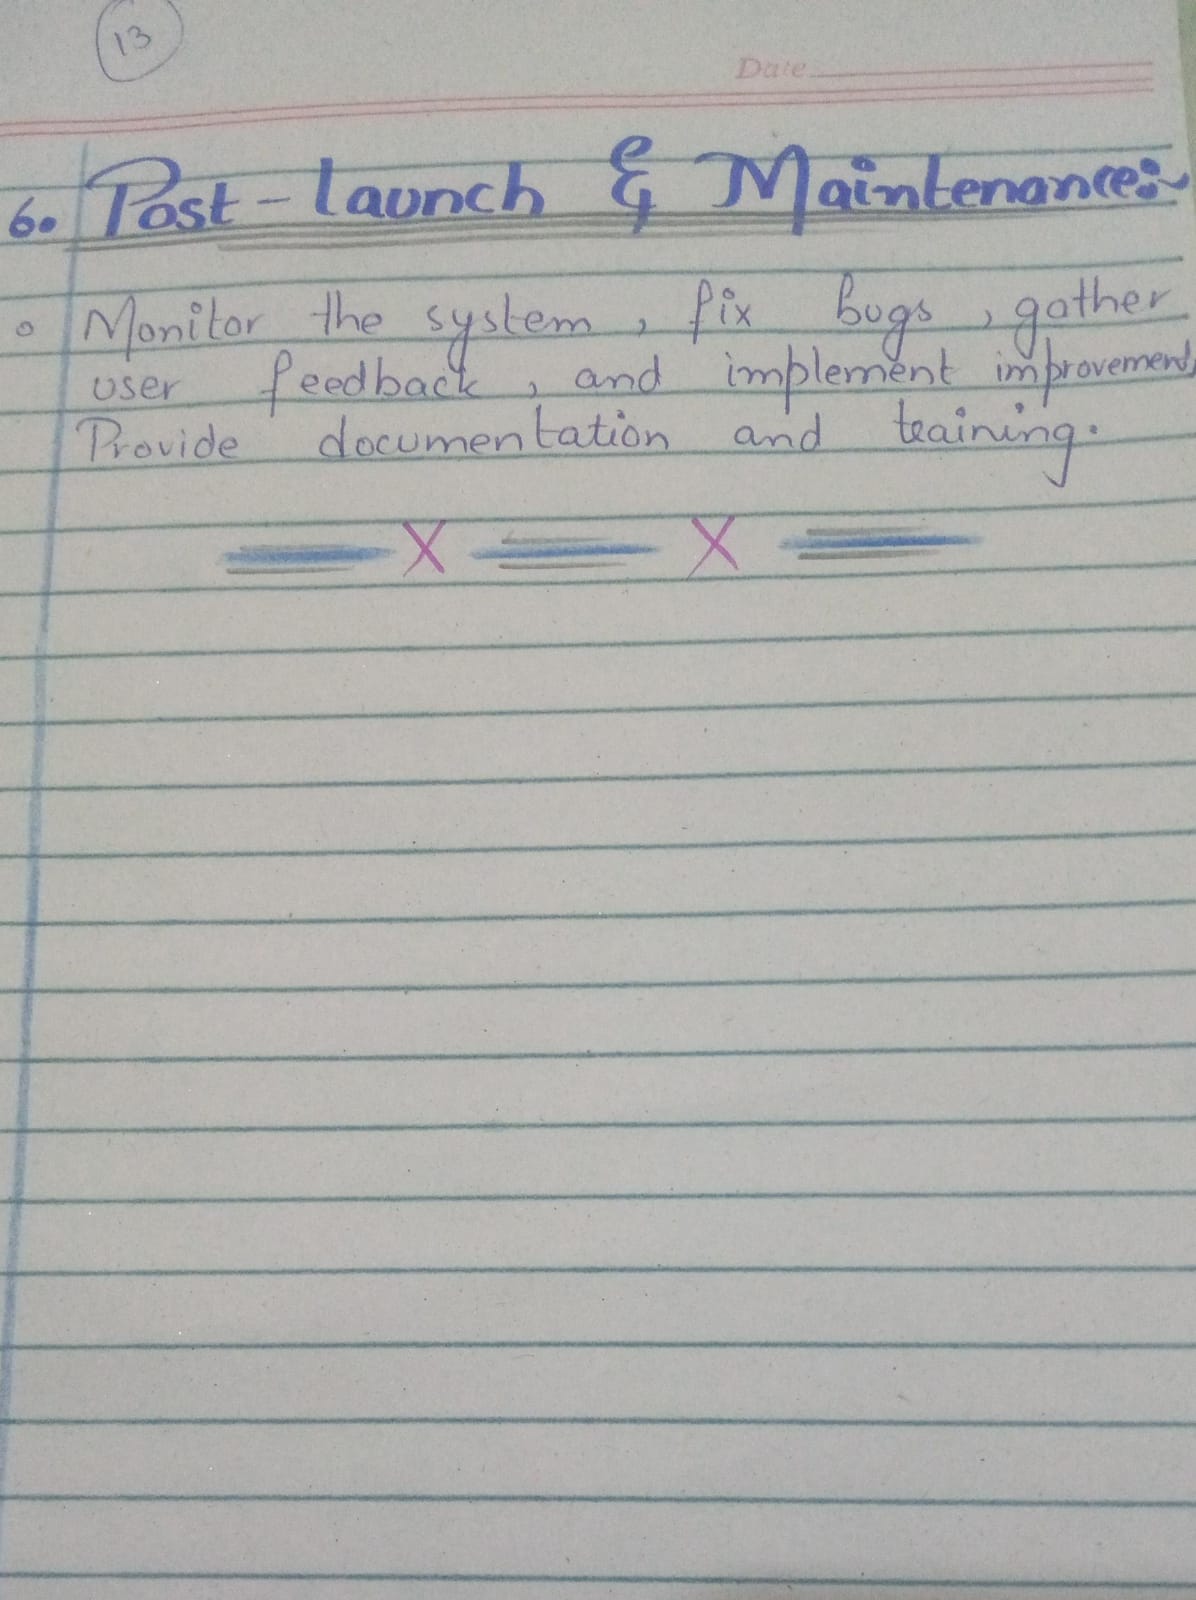 13
Date
6. Post-launch & Maintenance:~
Monitor the system, fix bugs, gather
user feedback, and implement improvements
Provide documentation and training.
X X